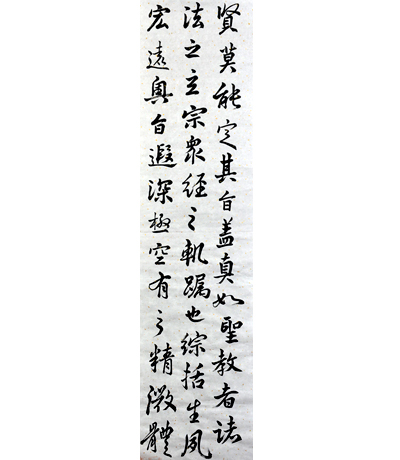 賢莫能定其旨盖真如聖教者諸
法之立宗衆經之軌躅也綜括生
宏遠奧旨遐深極空有之精微體